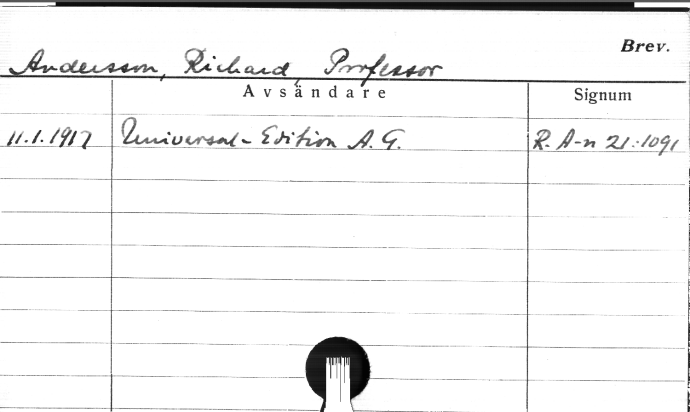 Brev.
Andersson, Richard, Professor
Avsändare Signum
11.1.1917 Universal-Edition A.G. R. A-n 21:1091